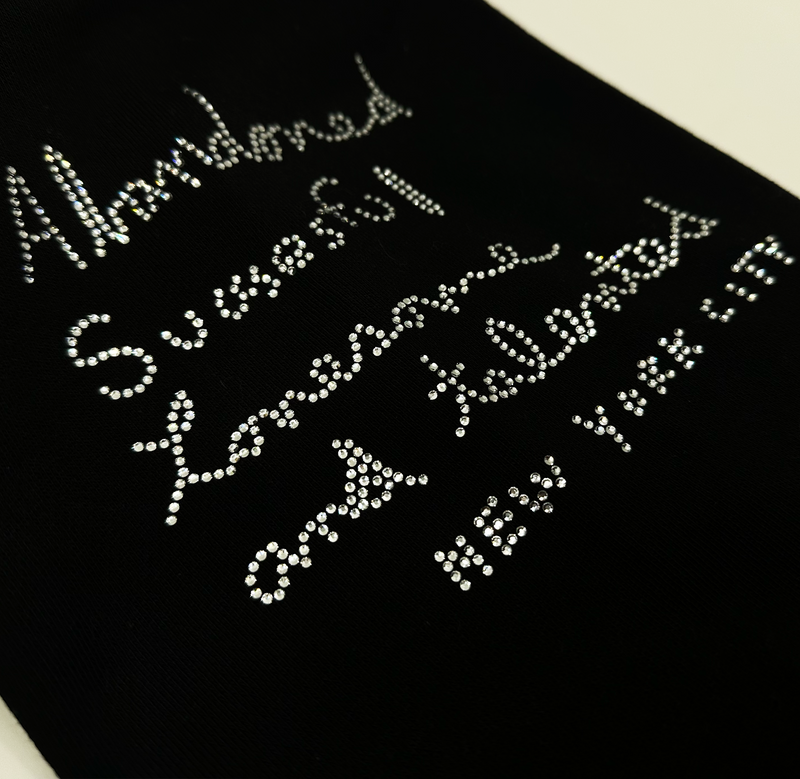 Abandoned
Sucessful
Lonesome
and talented
NEW YORK CITY